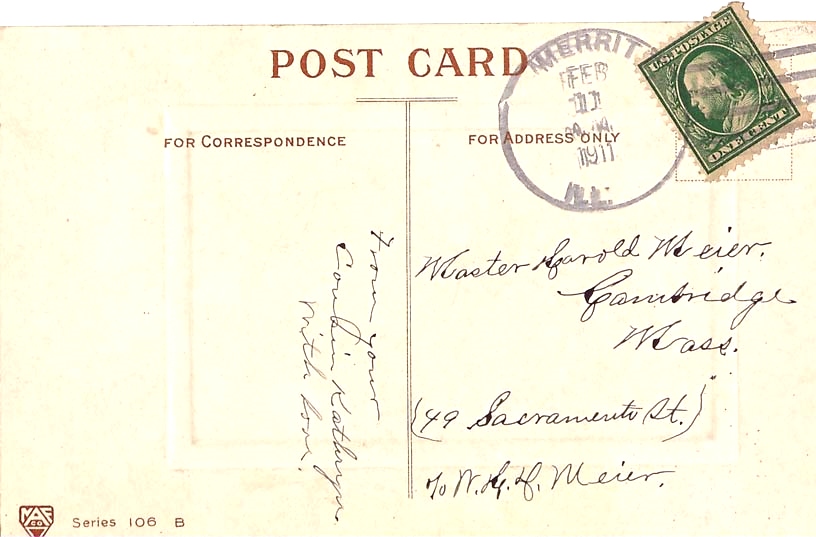 POST CARD
MERRIT
FEB
11
A.M.
1911
ILL.
U.S. POSTAGE
ONE CENT
FOR CORRESPONDENCE
FOR ADDRESS ONLY
From your
Cousin Kathryn.
With love.
Master Harold Meier.
Cambridge
Mass.
(49 Sacramento St.)
c/o W. H. H. Meier.
Series 106 B